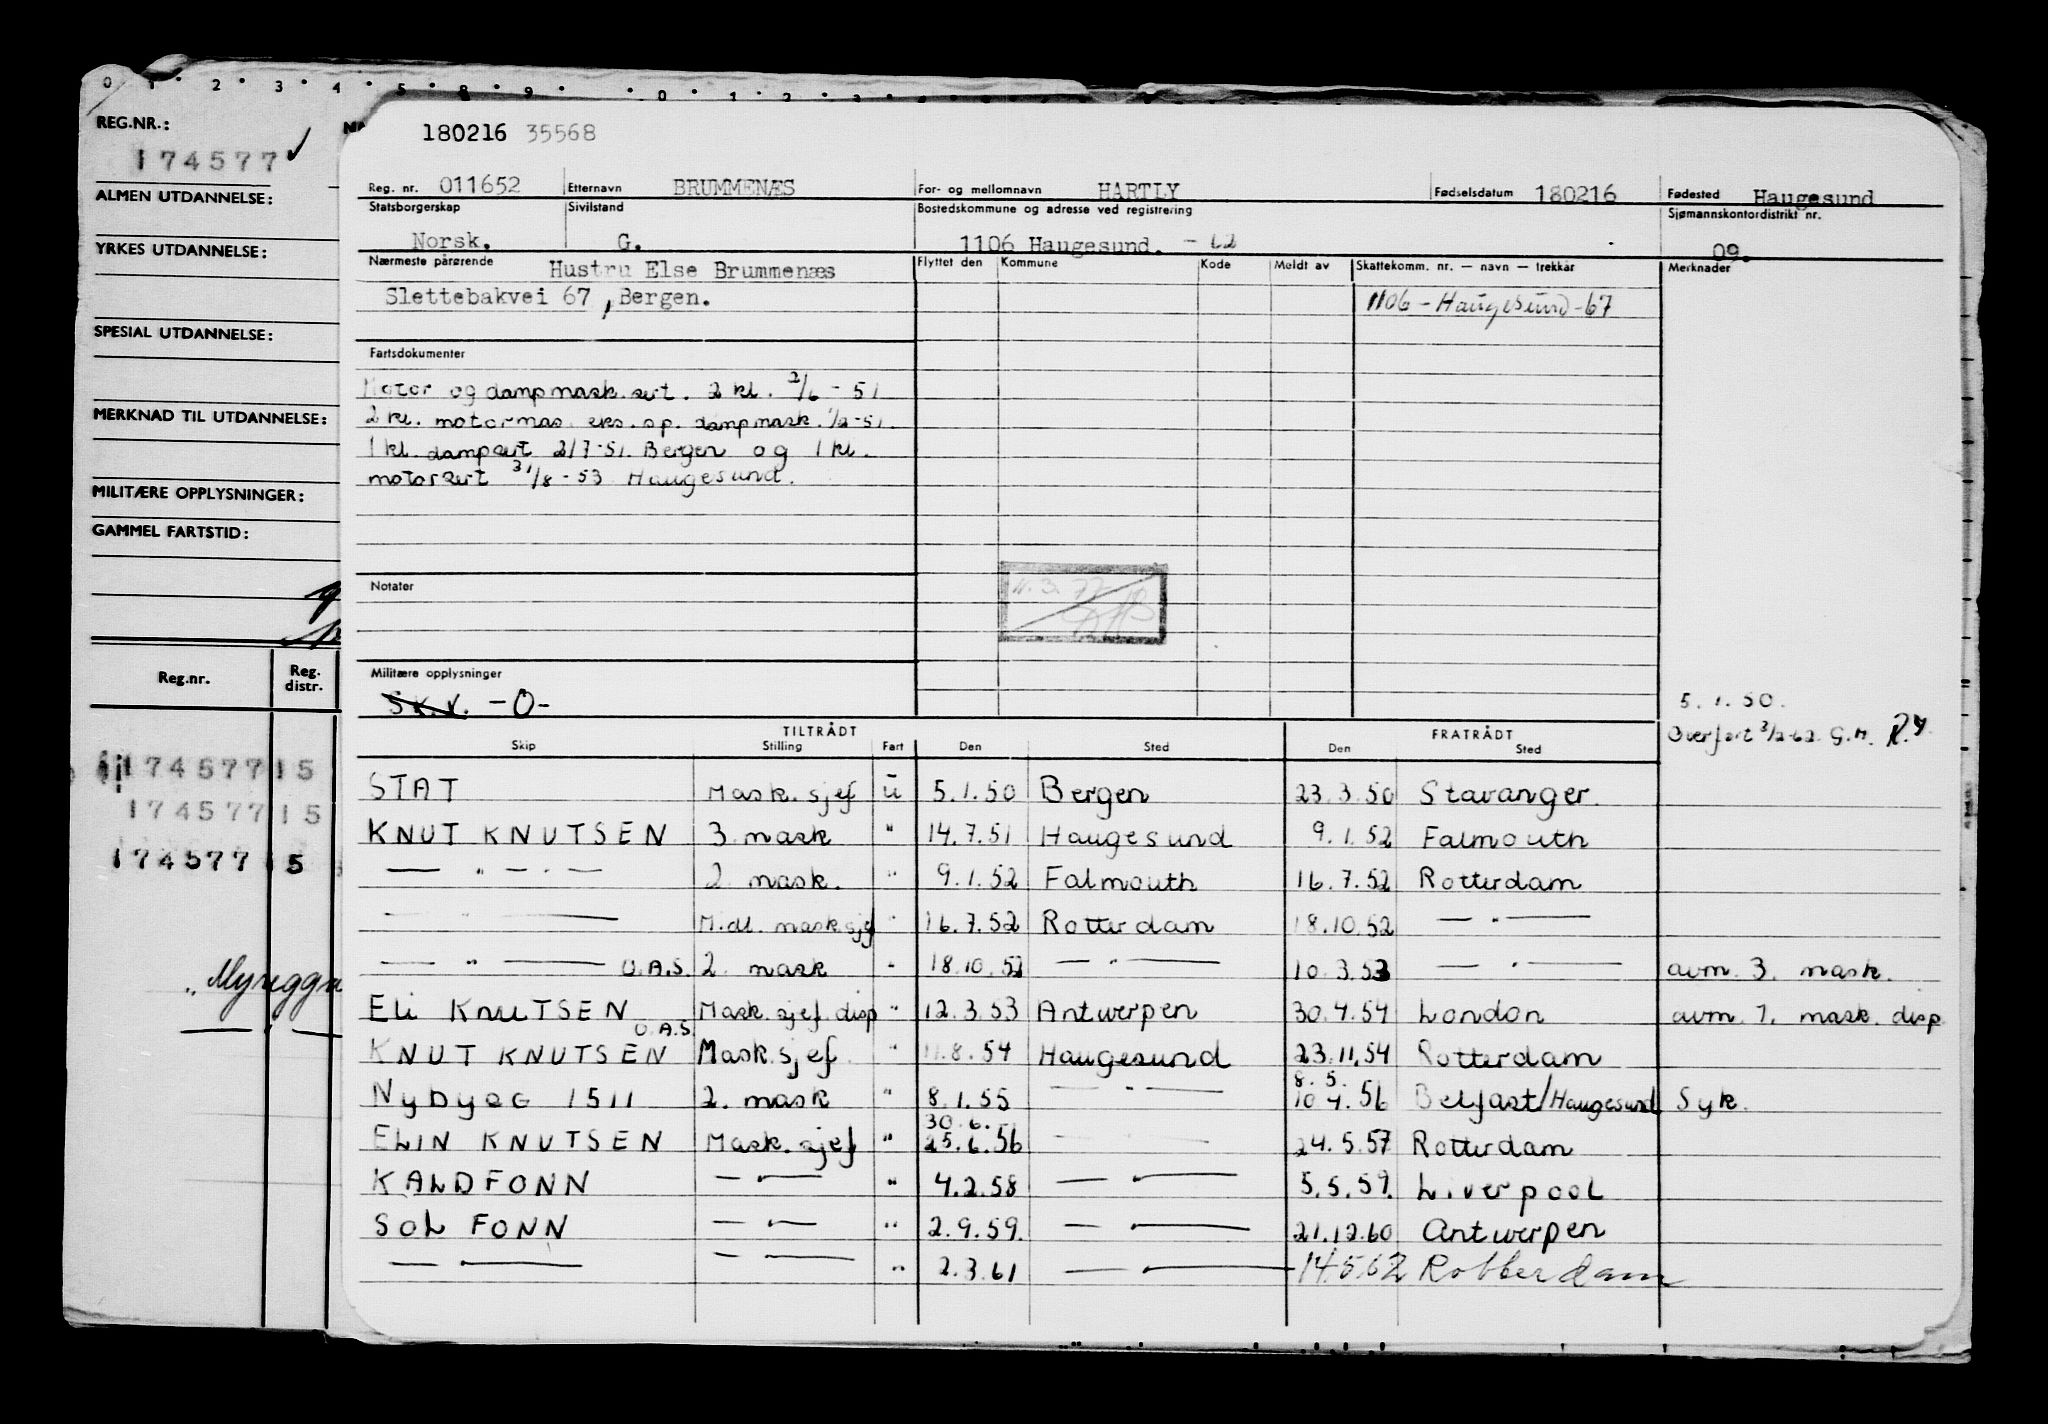 0 1 2 3 4 5 8 9 0 1 2 3
REG.NR.:
174577
ALMEN UTDANNELSE:
YRKES UTDANNELSE:
SPESIAL UTDANNELSE:
MERKNAD TIL UTDANNELSE:
MILITÆRE OPPLYSNINGER:
GAMMEL FARTSTID:
Reg.nr. Reg. distr.
174577 15
174577 15
174577 15
180216 35568
Reg. nr. 011652 Etternavn BRUMMENÆS For- og mellomnavn HARTLY Fødselsdatum 180216 Fødested Haugesund
Statsborgerskap Sivilstand Bostedskommune og adresse ved registrering Sjømannskontordistrikt nr.
Norsk. G. 1106 Haugesund. - 62 09.
Nærmeste pårørende Hustru Else Brummenæs Flyttet den Kommune Kode Meldt av Skattekomm. nr. — navn — trekkår Merknader
Slettebakvei 67, Bergen. 1106 - Haugesund - 67
Fartsdokumenter
Motor og dampmask.sert. 2 kl. 2/6 - 51
2 kl. motormas. eks. op. dampmask. 1/2-51.
1 kl. dampsert 2/7-51. Bergen og 1 kl.
motorsert 31/8 - 53 Haugesund.
Notater
11.3.77
Militære opplysninger
Sk.v. -0-
5.1.50.
Overført 3/2-62 G.H.
TILTRÅDT FRATRÅDT
Skip Stilling Fart Den Sted Den Sted
STAT Mask. sjef u 5.1.50 Bergen 23.3.50 Stavanger.
KNUT KNUTSEN 3. mask " 14.7.51 Haugesund 9.1.52 Falmouth
— " — " — 2. mask. " 9.1.52 Falmouth 16.7.52 Rotterdam
— " — M.dl. mask.sjef " 16.7.52 Rotterdam 18.10.52 — " —
— " — O.A.S. 2. mask - 18.10.52 — " — 10.3.53 — " — avm. 3. mask.
Eli KNUTSEN O.A.S. Mask. sjef. disp " 12.3.53 Antwerpen 30.4.54 London avm. 1. mask. disp
KNUT KNUTSEN Mask. sjef. " 11.8.54 Haugesund 23.11.54 Rotterdam
8.5.
Nybygg 1511 2. mask " 8.1.55 — " — 10.4.56 Belfast/Haugesund Syk.
30.6.
ELIN KNUTSEN Mask. sjef " 25.6.56 — " — 24.5.57 Rotterdam
KALDFONN — " — " 4.2.58 — " — 5.5.59. Liverpool
SOLFONN — " — " 2.9.59. — " — 21.12.60 Antwerpen
— " — — " — " 2.3.61 — " — 14.5.62 Rotterdam